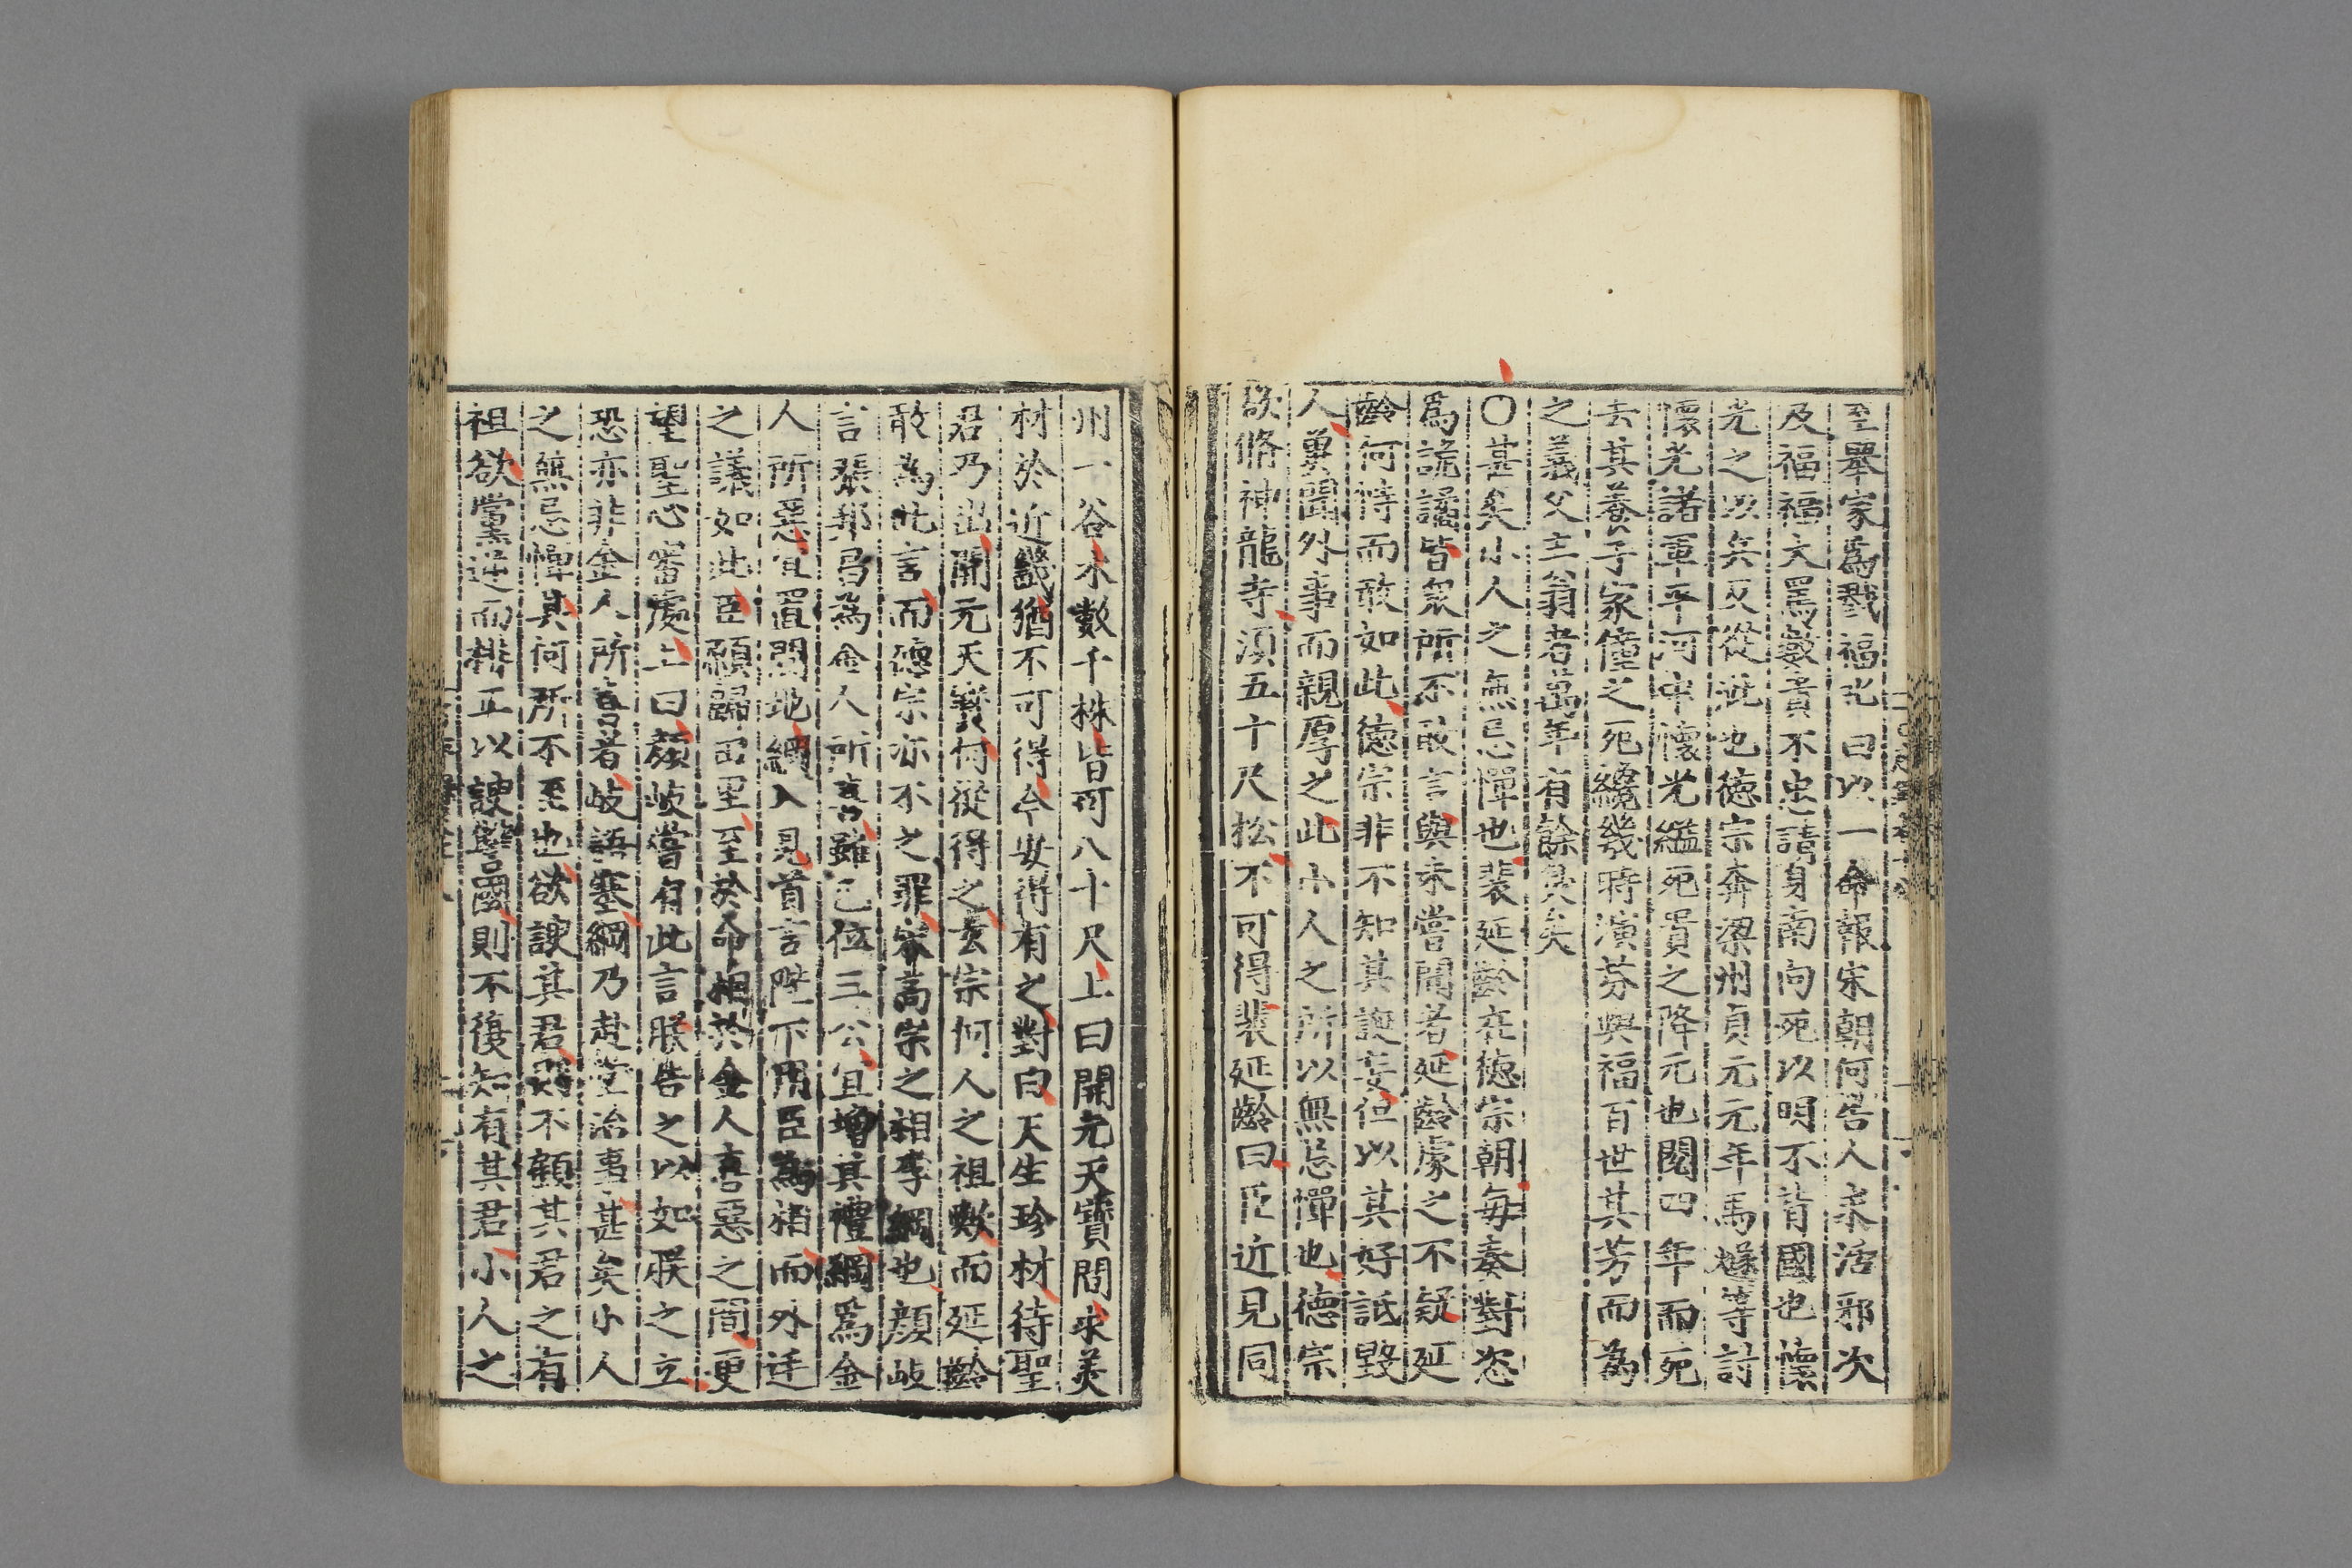 至舉家爲戮福 曰以一命報宋朝何告人求活邪次
及福福大罵數貴不忠請身南向死以明不背國也懷
光之以兵反從 也德宗奔梁州貞元元年馬燧等討
懷光諸軍平河中懷光縊死貴之降元也閱四年而死
去其養子家僮之死纔幾時演芬與福百世其芳而爲
之義父主翁者萬年有餘臭矣
〇甚矣小人之無忌憚也裴延齡在德宗朝每奏對恣
爲詭譎皆衆所不敢言與未嘗聞者延齡處之不疑延
齡何恃而敢如此德宗非不知其誕妄但以其好詆毀
人冀聞外事而親厚之此小人之所以無忌憚也德宗
欲脩神龍寺須五十尺松不可得裴延齡曰臣近見同
州一谷木數千株皆可八十尺上曰開元天寶間求美
材於近畿猶不可得今安得有之對曰天生珍材待聖
君乃出開元天寶何從得之玄宗何人之祖歟而延齡
敢為此言而德宗亦不之罪宋高宗之相李綱也顏岐
言張邦昌為金人所喜雖已位三公宜增其禮綱爲金
人所惡宜置閒地綱入見首言陛下用臣為相而外廷
之議如此臣願歸田里至於命相於金人喜惡之間更
望聖心審處上曰顏岐嘗有此言朕告之以如朕之立
恐亦非金人所喜者岐語塞綱乃赴堂治事甚矣小人
之無忌憚其何所不至也欲諛其君則不顧其君之有
祖欲黨逆而排正以諛讐國則不復知有其君小人之